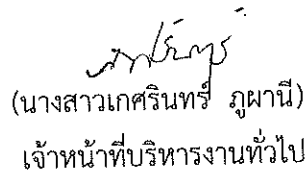 (นางสาวเกศรินทร์ ภูผานี)
เจ้าหน้าที่บริหารงานทั่วไป